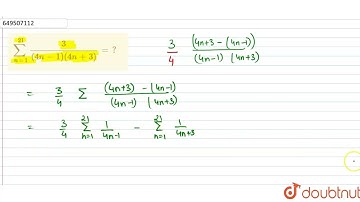 649507112
21 Σ n=1 3/((4n−1)(4n+3)) = ?
3/4 (4n+3 − (4n−1))/((4n−1) (4n+3))
= 3/4 Σ ((4n+3) − (4n−1))/((4n−1) (4n+3))
= 3/4 21 Σ n=1 1/(4n−1) − 21 Σ n=1 1/(4n+3)
doubtnut